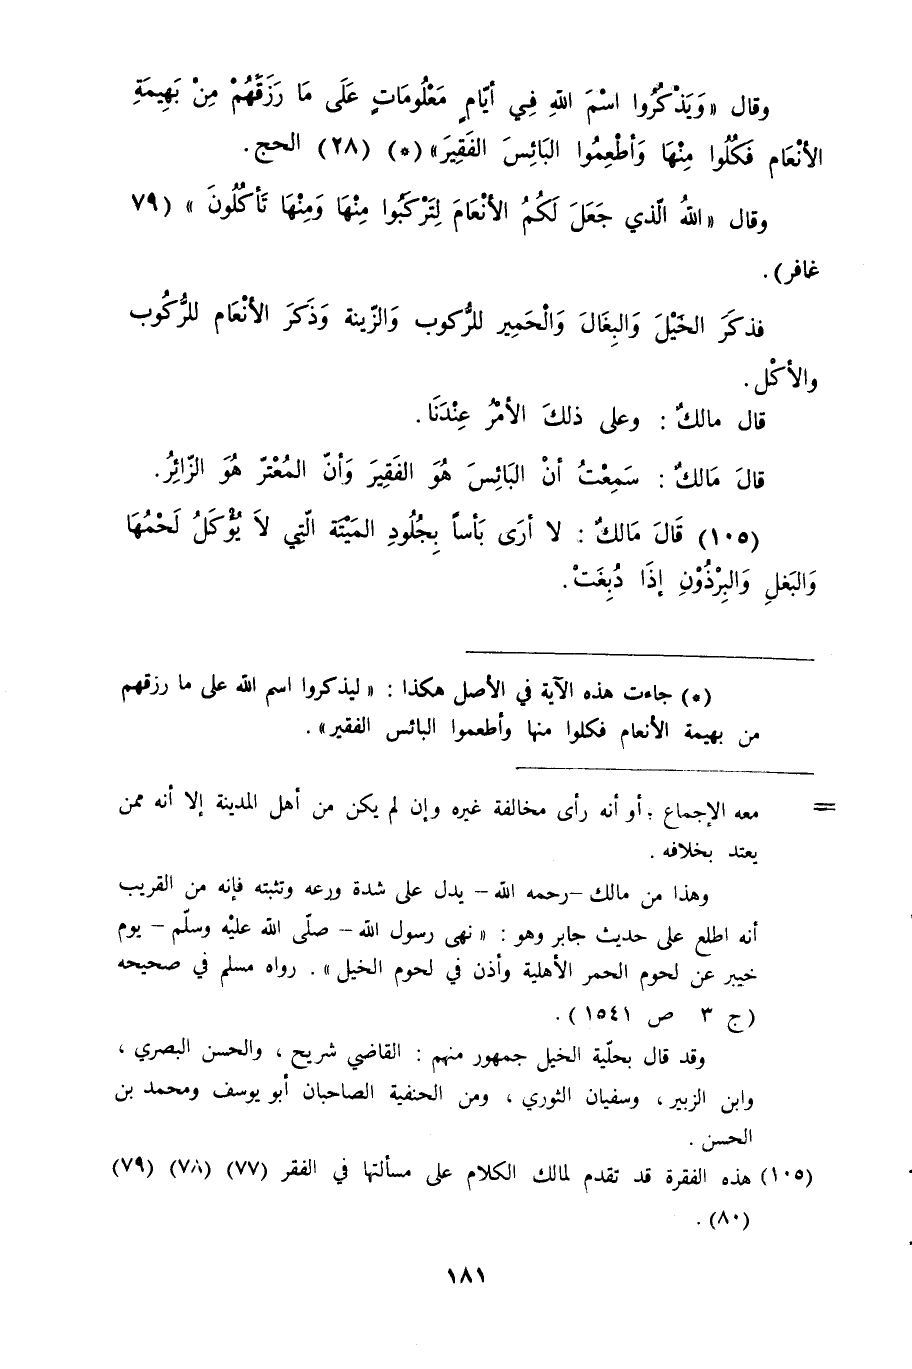 وقال «وَيَذْكُرُوا اسْمَ اللهِ فِي أَيَّامٍ مَعْلُومَاتٍ عَلَى مَا رَزَقَهُمْ مِنْ بَهِيمَةِ
الأَنْعَامِ فَكُلُوا مِنْهَا وَأَطْعِمُوا البَائِسَ الفَقِيرَ» (*) (٢٨) الحج.
وقال «اللهُ الّذي جَعَلَ لَكُمُ الأَنْعَامَ لِتَرْكَبُوا مِنْهَا وَمِنْهَا تَأْكُلُونَ» (٧٩
غافر).
فذكَرَ الخَيْلَ وَالبِغَالَ وَالْحَمِير للرُّكوب وَالزّينة وَذَكَرَ الأَنْعَام للرُّكُوب
والأكْل.
قال مالكٌ : وعلى ذلكَ الأمْرُ عِنْدَنَا.
قالَ مَالكٌ : سَمِعْتُ أنْ البَائِسَ هُوَ الفَقِيرَ وَأنّ المُعْترّ هُوَ الزّائِرُ.
(١٠٥) قَالَ مَالكٌ : لا أرَى بَأساً بِجُلُودِ المَيْتَة الّتِي لاَ يُؤْكَلُ لَحْمُهَا
وَالبَغلِ وَالبِرْذُوْنِ إذَا دُبِغَتْ.
(*) جاءت هذه الآية في الأصل هكذا : «ليذكروا اسم الله على ما رزقهم
من بهيمة الأنعام فكلوا منها وأطعموا البائس الفقير».
= معه الإجماع ؛ أو أنه رأى مخالفة غيره وإن لم يكن من أهل المدينة إلا أنه ممن
يعتد بخلافه .
وهذا من مالك –رحمه الله– يدل على شدة ورعه وتثبته فإنه من القريب
أنه اطلع على حديث جابر وهو : «نهى رسول الله – صلّى الله عليْه وسلّم – يوم
خيبر عن لحوم الحمر الأهلية وأذن في لحوم الخيل» . رواه مسلم في صحيحه
(ج ٣ ص ١٥٤١) .
وقد قال بحلّية الخيل جمهور منهم : القاضي شريح ، والحسن البصري ،
وابن الزبير ، وسفيان الثوري ، ومن الحنفية الصاحبان أبو يوسف ومحمد بن
الحسن .
(١٠٥) هذه الفقرة قد تقدم لمالك الكلام على مسألتها في الفقر (٧٧) (٧٨) (٧٩)
(٨٠) .
١٨١